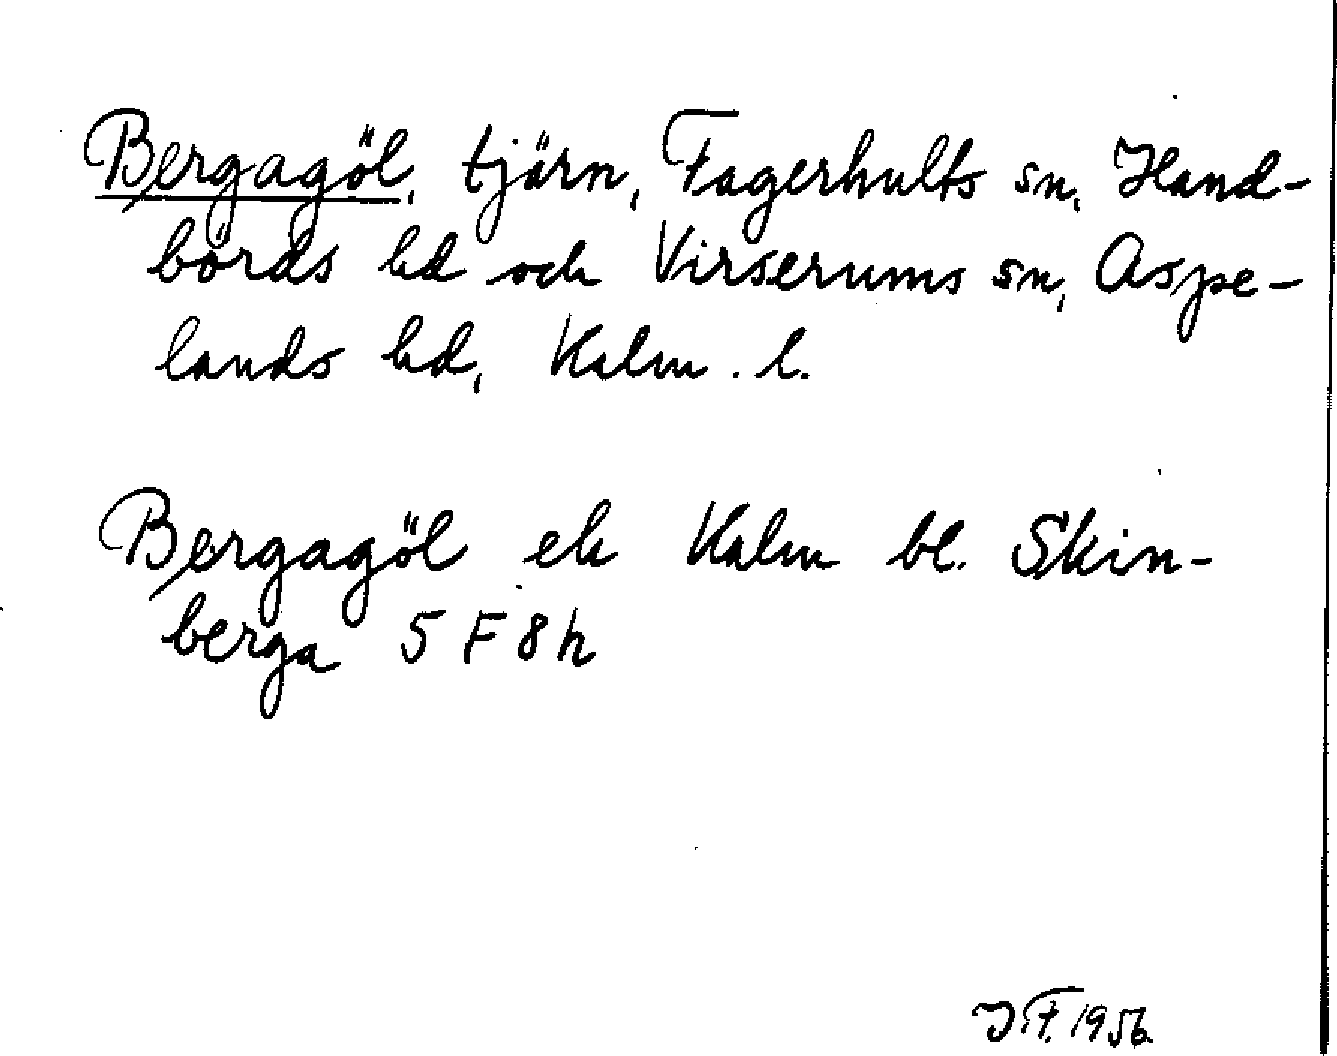 Bergagöl, tjärn, Fagerhults sn, Hand-
börds hd och Virserums sn, Aspe-
lands hd, Kalm. l.
Bergagöl ek Kalm bl. Skin-
berga 5 F 8 h
J F. 1956.